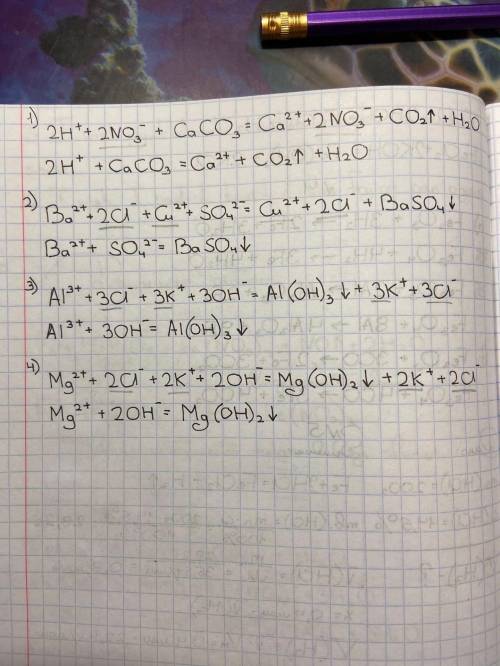 1) 2H⁺ + 2NO₃⁻ + CaCO₃ = Ca²⁺ + 2NO₃⁻ + CO₂↑ + H₂O
2H⁺ + CaCO₃ = Ca²⁺ + CO₂↑ + H₂O
2) Ba²⁺ + 2Cl⁻ + Cu²⁺ + SO₄²⁻ = Cu²⁺ + 2Cl⁻ + BaSO₄↓
Ba²⁺ + SO₄²⁻ = BaSO₄↓
3) Al³⁺ + 3Cl⁻ + 3K⁺ + 3OH⁻ = Al(OH)₃↓ + 3K⁺ + 3Cl⁻
Al³⁺ + 3OH⁻ = Al(OH)₃↓
4) Mg²⁺ + 2Cl⁻ + 2K⁺ + 2OH⁻ = Mg(OH)₂↓ + 2K⁺ + 2Cl⁻
Mg²⁺ + 2OH⁻ = Mg(OH)₂↓